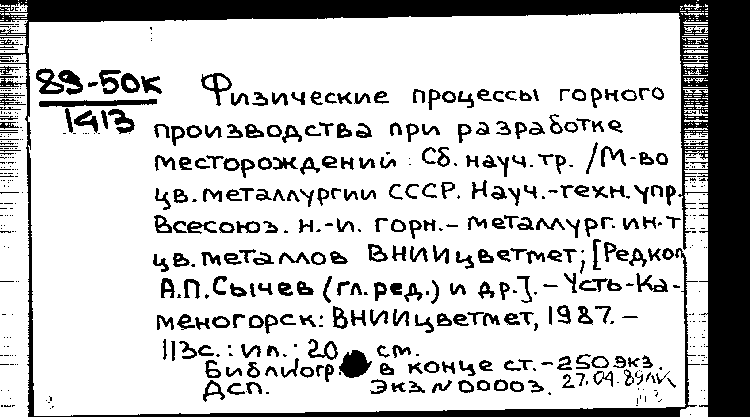 89-50к Физические процессы горного
1413 производства при разработке
месторождений : Сб. науч. тр. / М-во
цв. металлургии СССР. Науч.-техн. упр.
Всесоюз. н.-и. горн.- металлург. ин-т
цв. металлов ВНИИцветмет; [Редкол
А.П. Сычев (гл. ред.) и др.]. - Усть-Ка-
меногорск: ВНИИцветмет, 1987. -
113с. : ил. ; 20 см.
Библиогр. в конце ст. - 250 экз.
ДСП. Экз N 00003. 27.04.89